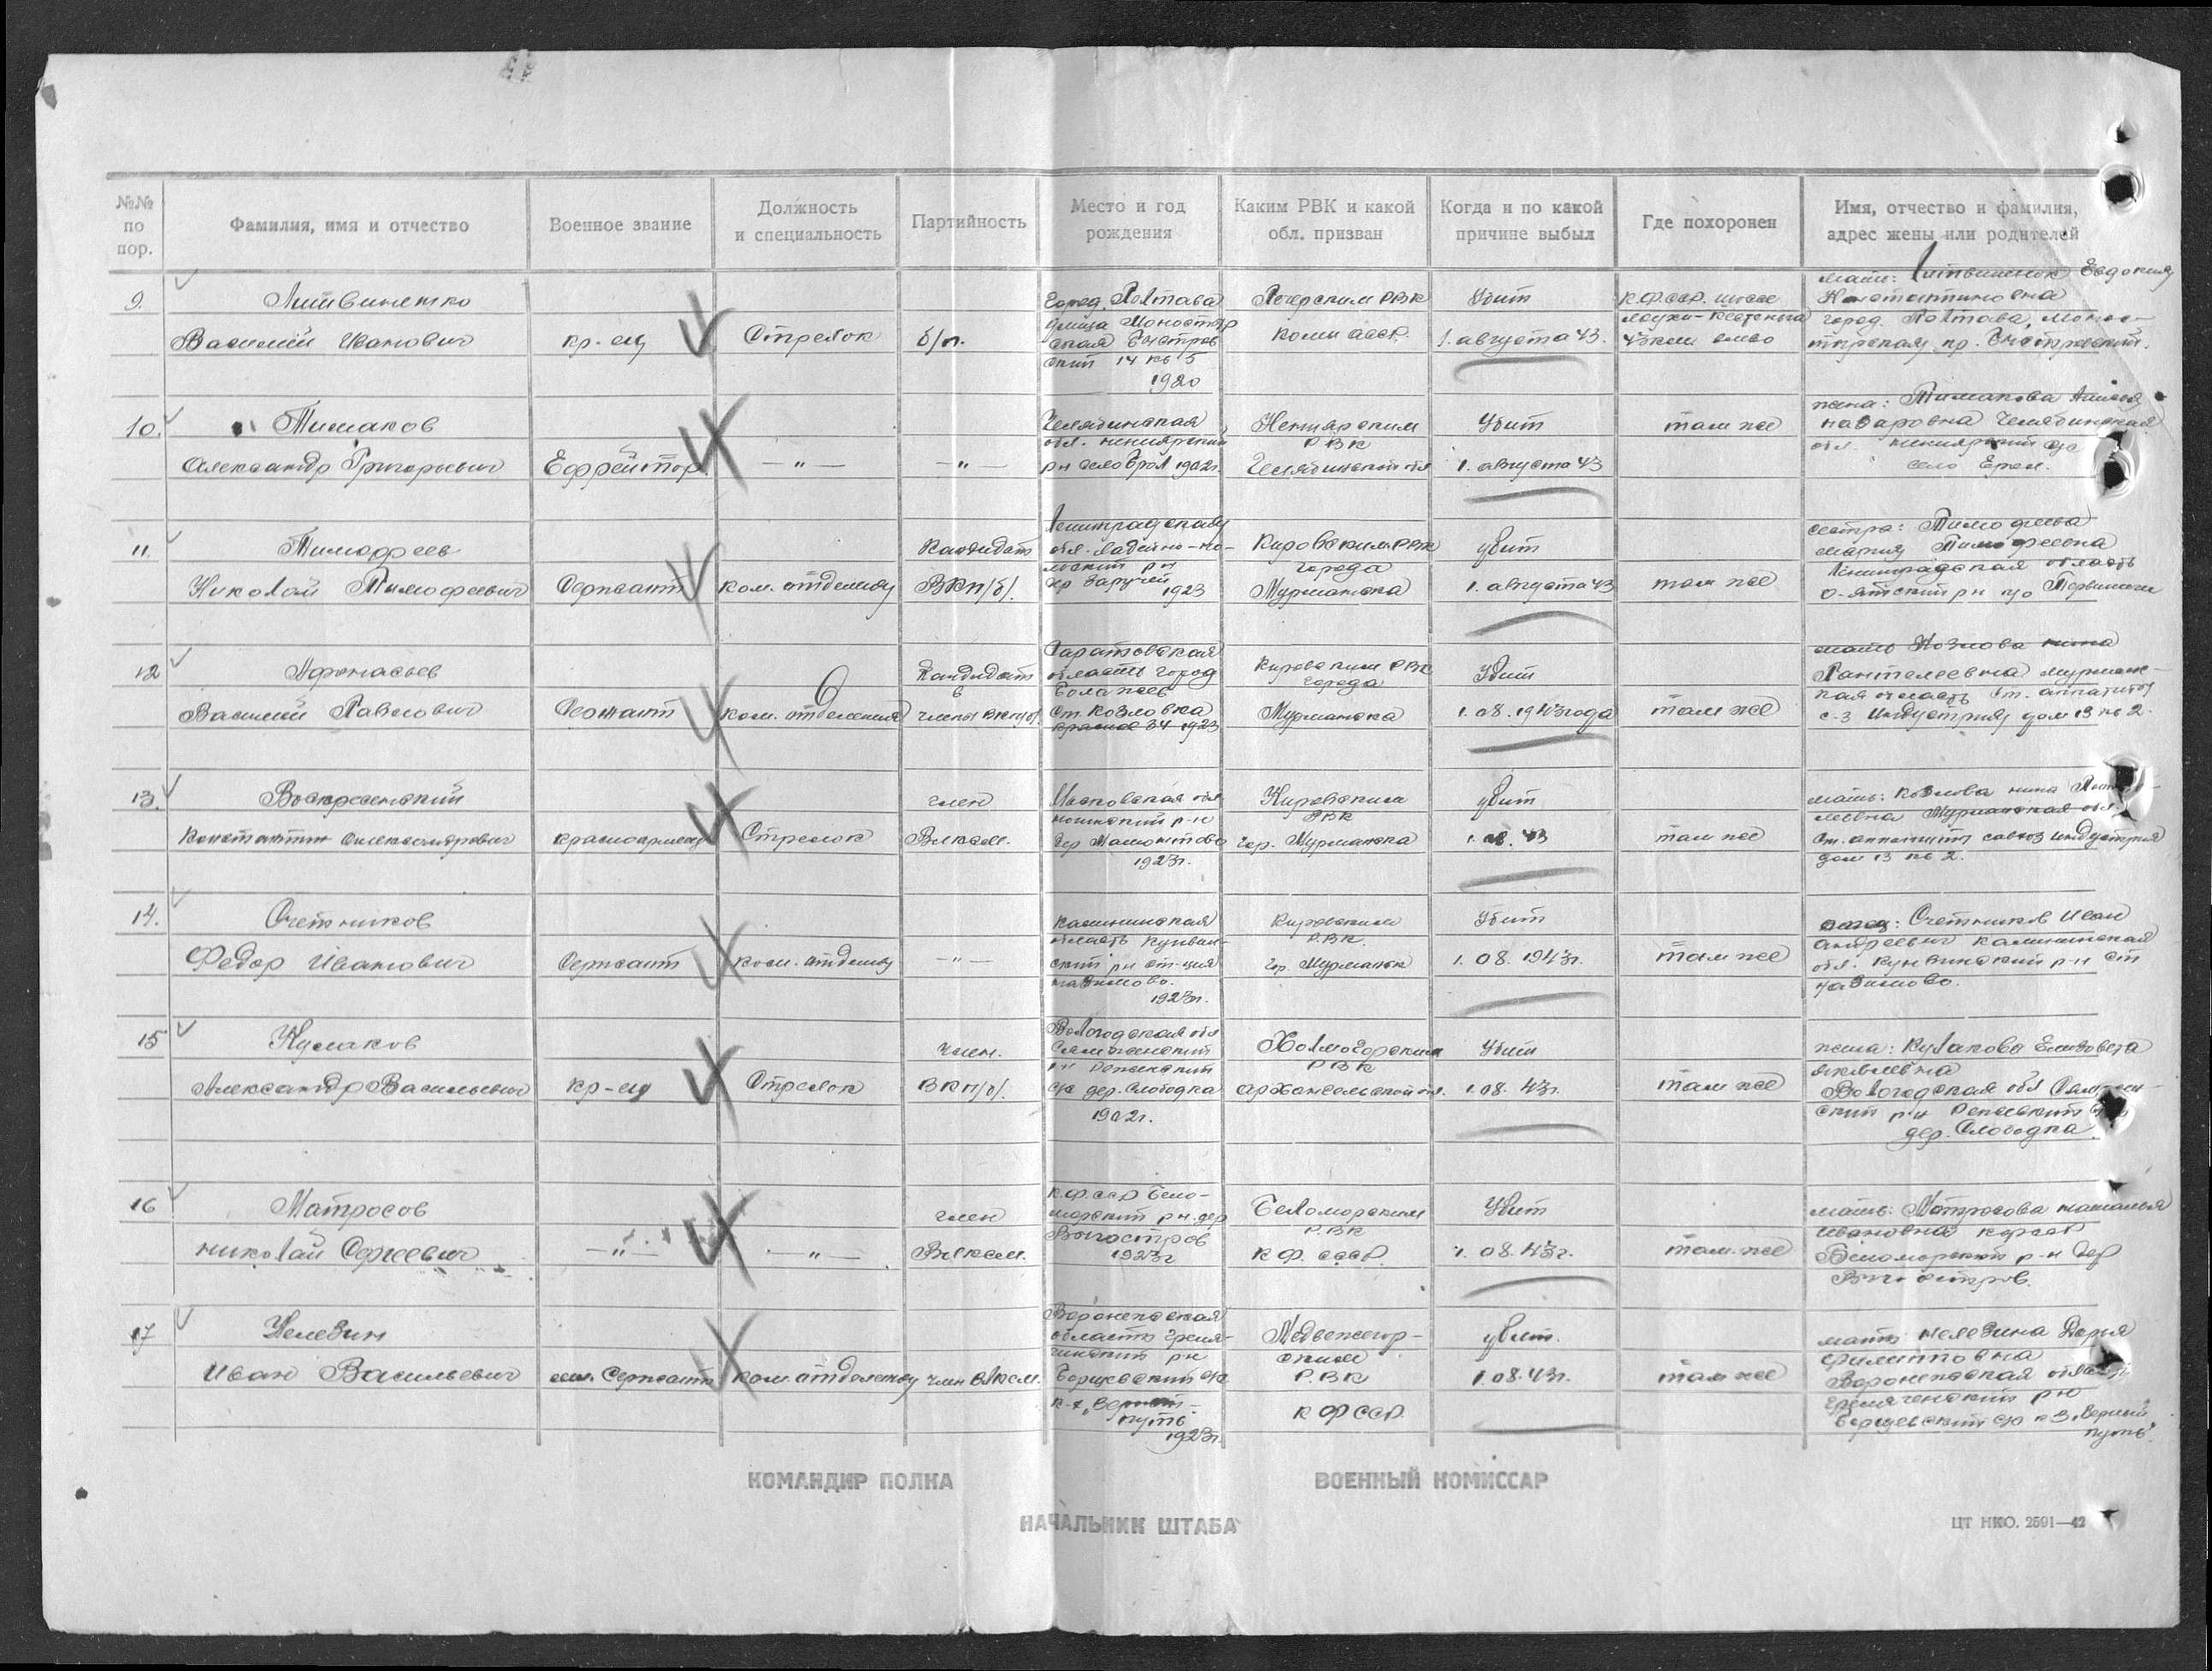 №№ по пор.
Фамилия, имя и отчество
Военное звание
Должность и специальность
Партийность
Место и год рождения
Каким РВК и какой обл. призван
Когда и по какой причине выбыл
Где похоронен
Имя, отчество и фамилия, адрес жены или родителей
9.
Литвиненко
Василий Иванович
кр-ец
Стрелок
б/п.
город Полтава
улица
14 кв 5
1920
Печерским РВК
Коми АССР.
Убит
1. августа 43.
К.Ф.ССР. шоссе
Лоухи-Кестеньга
43 км влево
мать: Евдокия
Константиновна
город. Полтава,
10.
Тимаков
Александр Григорьевич
Ефрейтор.
— " —
— " —
Челябинская
обл.
рн село 1902г.
РВК
Челябинской обл
Убит
1. августа 43
там же
жена: Тимакова
Назаровна Челябинская
обл.
село
11.
Тимофеев
Николай Тимофеевич
Сержант
ком. отделения
Кандидат
ВКП/б/.
Ленинградская
обл. Ладейно-по-
рн
др Заручей
1923
Кировским РВК
города
Мурманска
убит
1. августа 43
там же
сестра: Тимофеева
Мария Тимофеевна
Ленинградская область
12
Афонасьев
Василий Павлович
Сержант
ком. отделения
Кандидат
в
члены ВКП/б/.
Саратовская
область город
ст. Козловка
34 1923
Кировским РВК
города
Мурманска
Убит
1.08.1943 года
там же
мать Козлова Нина
Пантелеевна Мурман-
ская область ст. Аппатиты
с-з Индустрия дом 13 кв 2.
13.
Воскресенский
Константин Александрович
красноармеец
Стрелок
член
ВЛКСМ.
Московская обл
р-н
дер Мамонтово
1923г.
Кировским
РВК
гор. Мурманска
убит
1.08.43
там же
мать: Козлова Нина
Мурманская обл.
ст. Аппатиты совхоз Индустрия
дом 13 кв 2.
14.
Счетчиков
Федор Иванович
Сержант
ком. отделения
— " —
Калининская
область Куньин-
ский рн ст-ция
Назимово.
1923г.
Кировским
РВК.
гор. Мурманск
Убит
1.08.1943г.
там же
отец: Счетчиков Иван
Андреевич Калининская
обл. Куньинский р-н ст
Назимово.
15
Кулаков
Александр Васильевич
кр-ец
Стрелок
член.
ВКП/б/.
Вологодская обл
с/с дер. Слободка
1902г.
Холмогорским
РВК
Архангельской обл.
Убит
1.08.43г.
там же
жена: Кулакова Елизовета
Яковлевна
Вологодская обл
дер. Слободка.
16
Матросов
Николай Сергеевич
— " —
— " —
член
ВЛКСМ.
К.Ф.ССР Бело-
морский рн. дер
Выгостров
1923г
Беломорским
РВК
К.Ф. СССР.
Убит
1.08.43г.
там-же
мать: Матросова Наталья
Ивановна КФССР
Беломорский р-н дер
Выгостров.
17
Нелезин
Иван Васильевич
Сержант
ком. отделения
член ВЛКСМ.
Воронежская
область Гремя-
ченский рн
Борщевский с/с
к-з „Верный
путь
1923г.
Медвежегор-
ским
РВК
КФССР.
убит.
1.08.43г.
там же
мать Нелезина Дарья
Филипповна
Воронежская область
Гремяченский рн
Борщевский с/с к-з „Верный
путь".
КОМАНДИР ПОЛКА
ВОЕННЫЙ КОМИССАР
НАЧАЛЬНИК ШТАБА
ЦТ НКО. 2591—42